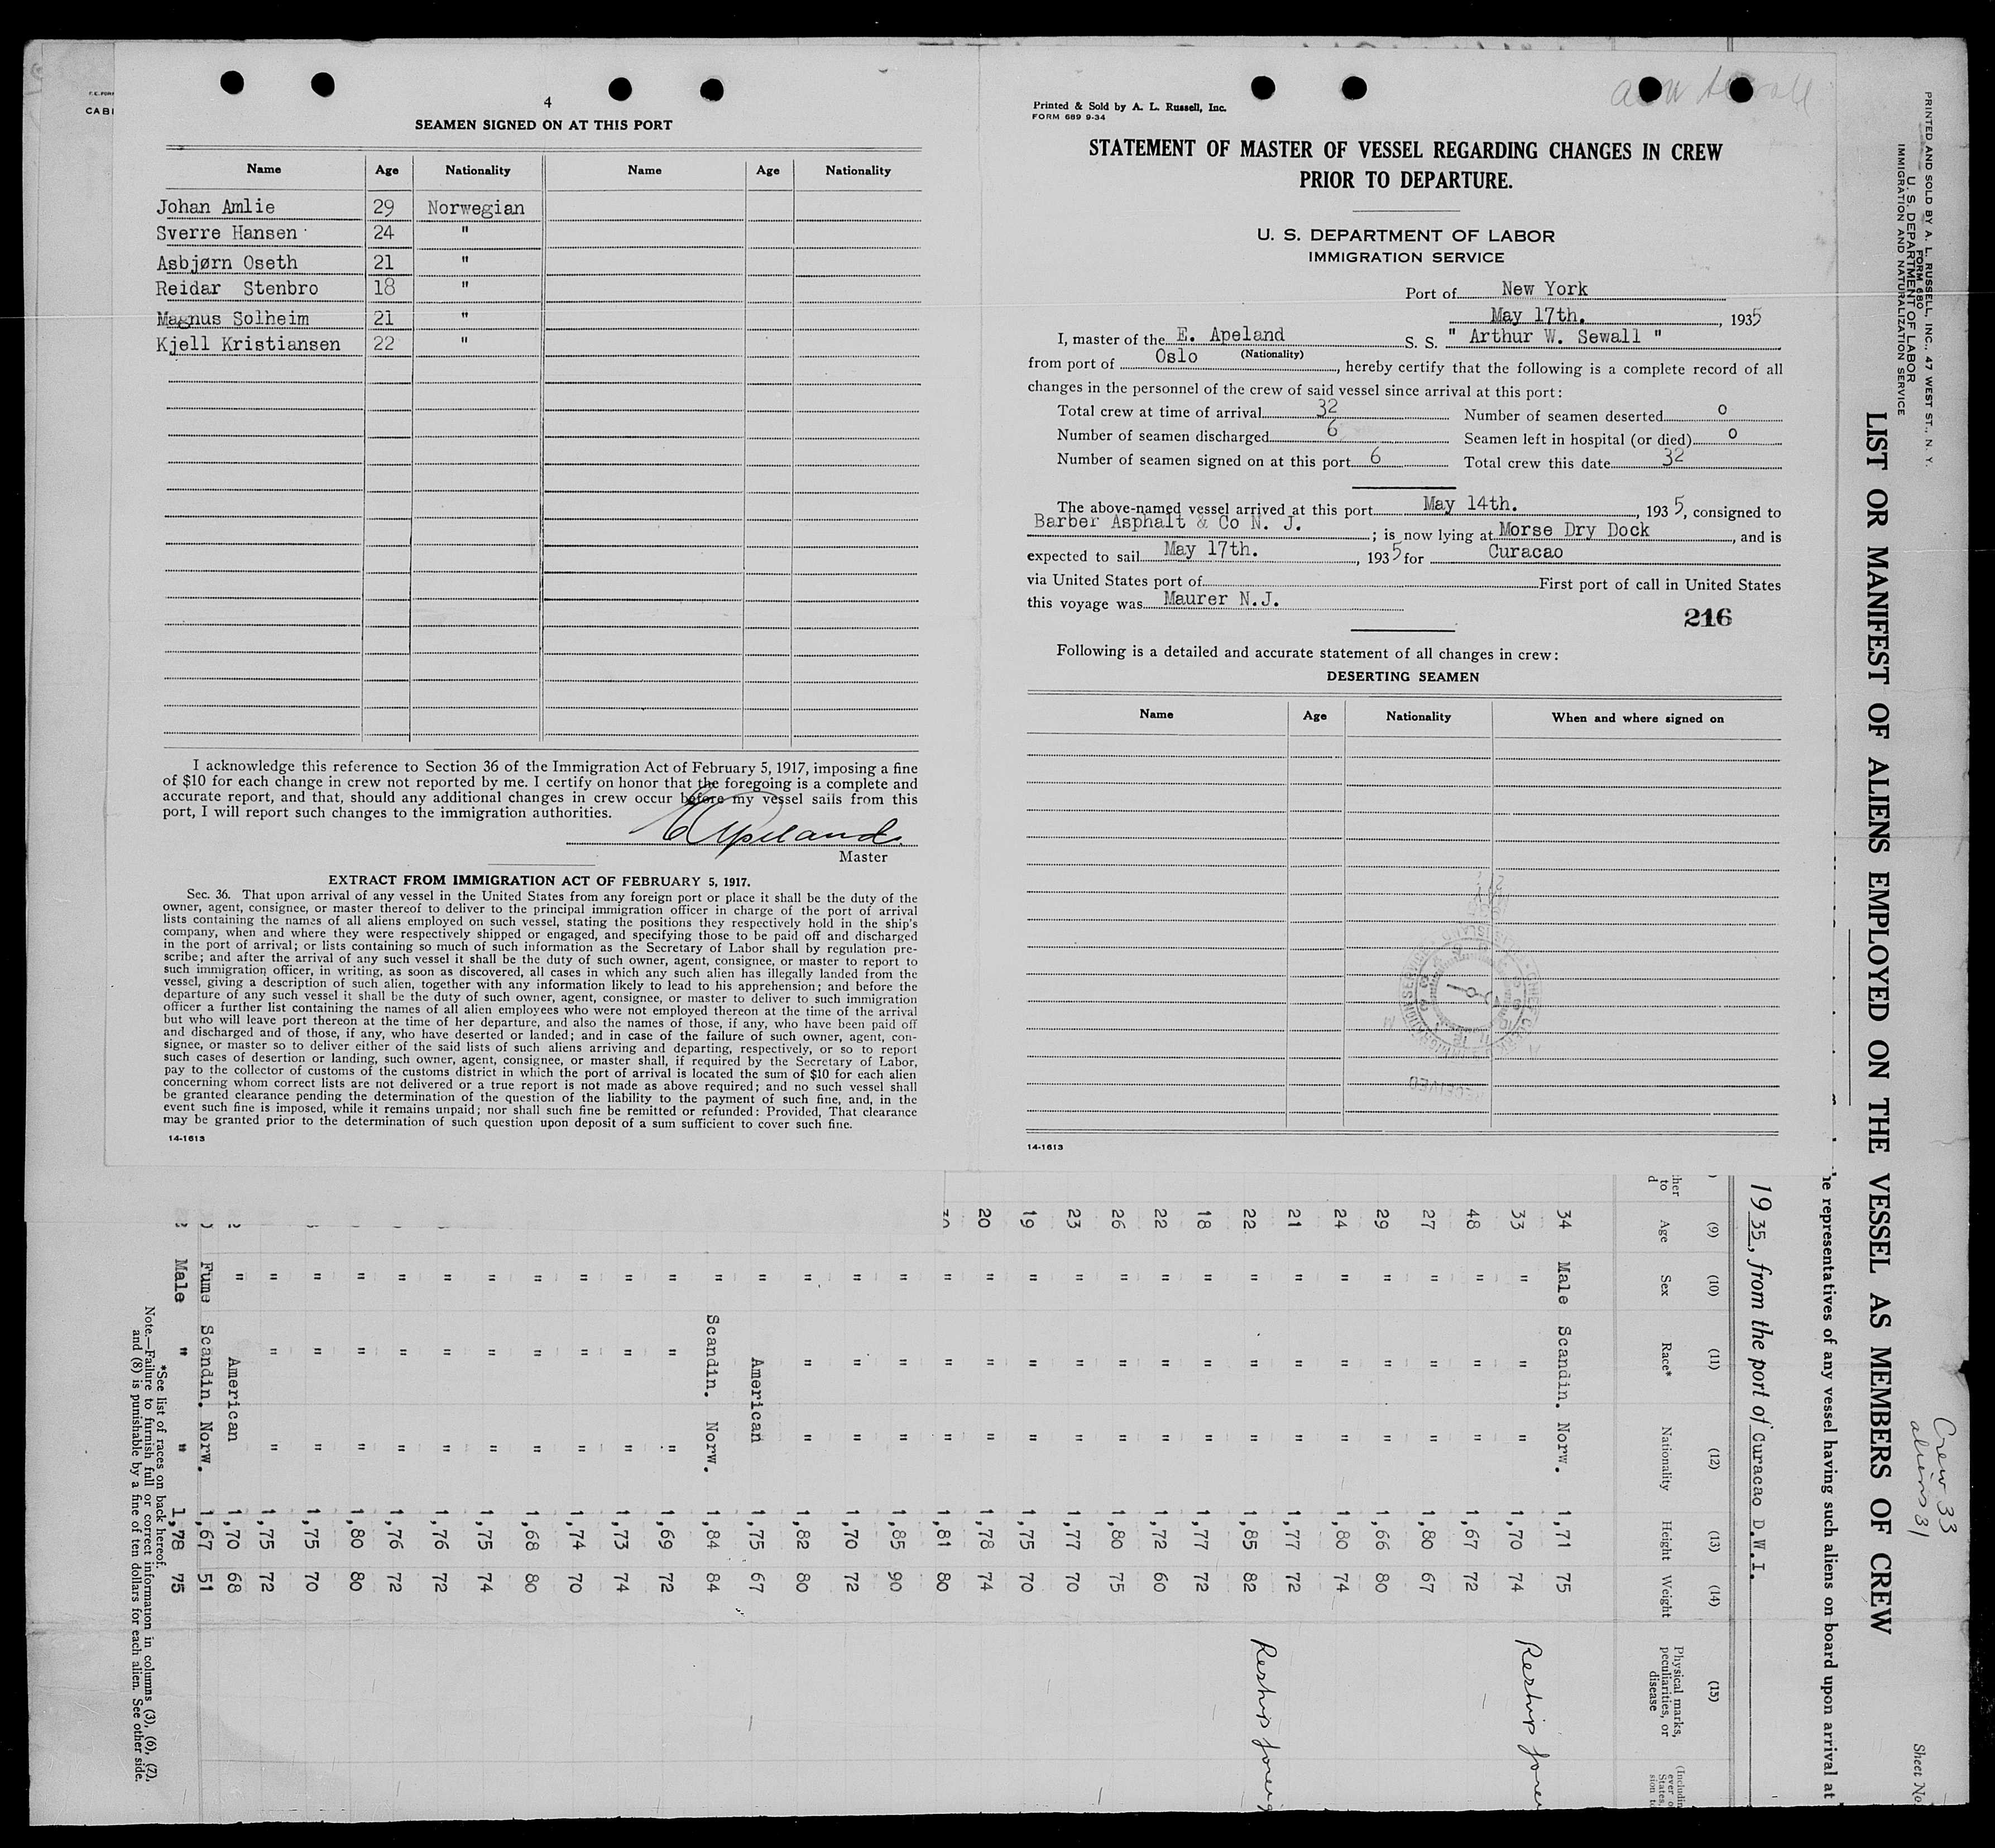 4
SEAMEN SIGNED ON AT THIS PORT
Name Age Nationality Name Age Nationality
Johan Amlie 29 Norwegian
Sverre Hansen 24 "
Asbjørn Oseth 21 "
Reidar Stenbro 18 "
Magnus Solheim 21 "
Kjell Kristiansen 22 "
I acknowledge this reference to Section 36 of the Immigration Act of February 5, 1917, imposing a fine
of $10 for each change in crew not reported by me. I certify on honor that the foregoing is a complete and
accurate report, and that, should any additional changes in crew occur before my vessel sails from this
port, I will report such changes to the immigration authorities.
E Apeland
Master
EXTRACT FROM IMMIGRATION ACT OF FEBRUARY 5, 1917.
Sec. 36. That upon arrival of any vessel in the United States from any foreign port or place it shall be the duty of the
owner, agent, consignee, or master thereof to deliver to the principal immigration officer in charge of the port of arrival
lists containing the names of all aliens employed on such vessel, stating the positions they respectively hold in the ship's
company, when and where they were respectively shipped or engaged, and specifying those to be paid off and discharged
in the port of arrival; or lists containing so much of such information as the Secretary of Labor shall by regulation pre-
scribe; and after the arrival of any such vessel it shall be the duty of such owner, agent, consignee, or master to report to
such immigration officer, in writing, as soon as discovered, all cases in which any such alien has illegally landed from the
vessel, giving a description of such alien, together with any information likely to lead to his apprehension; and before the
departure of any such vessel it shall be the duty of such owner, agent, consignee, or master to deliver to such immigration
officer a further list containing the names of all alien employees who were not employed thereon at the time of the arrival
but who will leave port thereon at the time of her departure, and also the names of those, if any, who have been paid off
and discharged and of those, if any, who have deserted or landed; and in case of the failure of such owner, agent, con-
signee, or master so to deliver either of the said lists of such aliens arriving and departing, respectively, or so to report
such cases of desertion or landing, such owner, agent, consignee, or master shall, if required by the Secretary of Labor,
pay to the collector of customs of the customs district in which the port of arrival is located the sum of $10 for each alien
concerning whom correct lists are not delivered or a true report is not made as above required; and no such vessel shall
be granted clearance pending the determination of the question of the liability to the payment of such fine, and, in the
event such fine is imposed, while it remains unpaid; nor shall such fine be remitted or refunded: Provided, That clearance
may be granted prior to the determination of such question upon deposit of a sum sufficient to cover such fine.
14-1613
Printed & Sold by A. L. Russell, Inc.
FORM 689 9-34
STATEMENT OF MASTER OF VESSEL REGARDING CHANGES IN CREW
PRIOR TO DEPARTURE.
U. S. DEPARTMENT OF LABOR
IMMIGRATION SERVICE
Port of New York
May 17th. , 1935
I, master of the E. Apeland S. S. " Arthur W. Sewall "
(Nationality)
from port of Oslo , hereby certify that the following is a complete record of all
changes in the personnel of the crew of said vessel since arrival at this port:
Total crew at time of arrival 32 Number of seamen deserted 0
Number of seamen discharged 6 Seamen left in hospital (or died) 0
Number of seamen signed on at this port 6 Total crew this date 32
The above-named vessel arrived at this port May 14th. , 1935, consigned to
Barber Asphalt & Co N. J. ; is now lying at Morse Dry Dock , and is
expected to sail May 17th. , 1935 for Curacao
via United States port of First port of call in United States
this voyage was Maurer N.J.
216
Following is a detailed and accurate statement of all changes in crew:
DESERTING SEAMEN
Name Age Nationality When and where signed on
RECEIVED
14-1613
PRINTED AND SOLD BY A. L. RUSSELL, INC., 47 WEST ST., N. Y.
FORM 680
U. S. DEPARTMENT OF LABOR
IMMIGRATION AND NATURALIZATION SERVICE
LIST OR MANIFEST OF ALIENS EMPLOYED ON THE VESSEL AS MEMBERS OF CREW
Crew 33
aliens 31
Sheet No.
representatives of any vessel having such aliens on board upon arrival at
1935, from the port of Curacao D.W.I.
(9) (10) (11) (12) (13) (14) (15)
Age Sex Race* Nationality Height Weight Physical marks, peculiarities, or disease
34 Male Scandin. Norw. 1,71 75
33 " " " 1,70 74 Reship foreign
48 " " " 1,67 72
27 " " " 1,80 67
29 " " " 1,66 80
24 " " " 1,80 74
21 " " " 1,77 72
22 " " " 1,85 82 Reship foreign
18 " " " 1,77 72
22 " " " 1,72 60
26 " " " 1,80 75
23 " " " 1,77 70
19 " " " 1,75 70
20 " " " 1,78 74
" " " 1,81 80
" " " 1,85 90
" " " 1,70 72
" " " 1,82 80
" American 1,75 67
" Scandin. Norw. 1,84 84
" " " 1,69 72
" " " 1,73 74
" " " 1,74 70
" " " 1,68 80
" " " 1,75 74
" " " 1,76 72
" " " 1,76 72
" " " 1,80 80
" " " 1,75 70
" " " 1,75 72
" American 1,70 68
Fume Scandin. Norw. 1,67 51
Male " " 1,78 75
*See list of races on back hereof.
Note.—Failure to furnish full or correct information in columns (3), (6), (7),
and (8) is punishable by a fine of ten dollars for each alien. See other side.